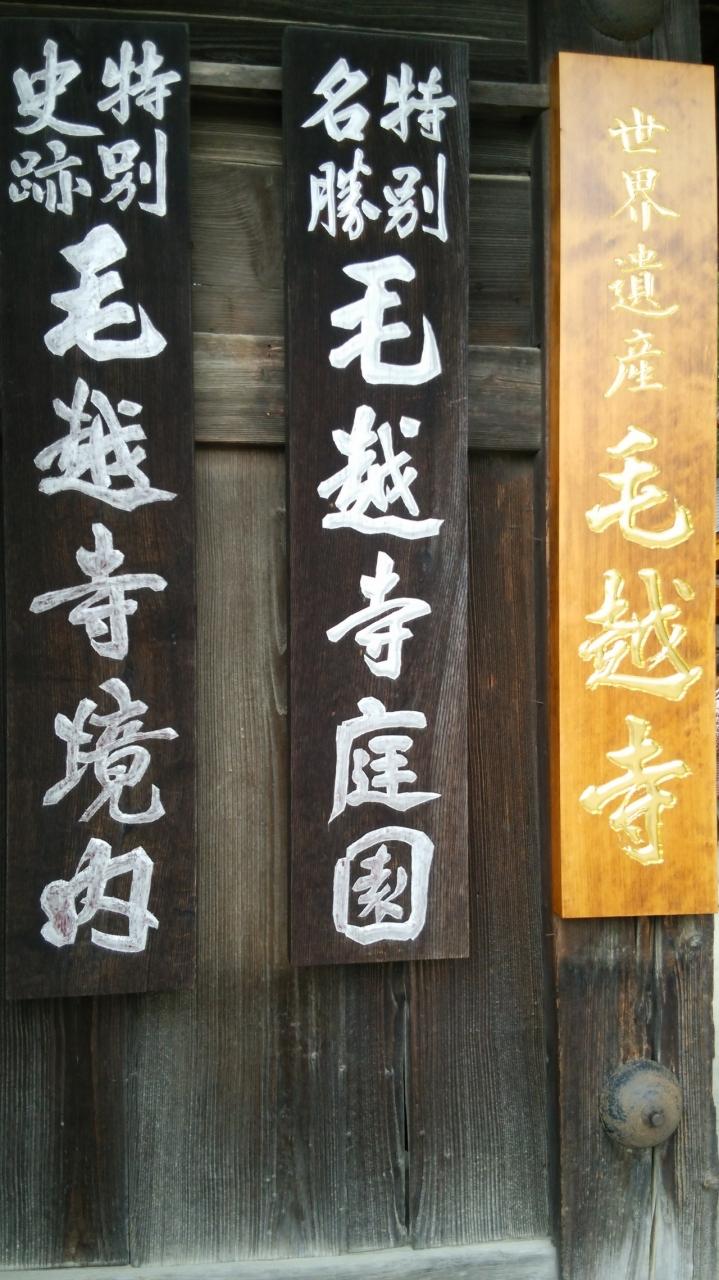 世界遺産毛越寺
特別
名勝
毛越寺庭園
特別
史跡
毛越寺境内